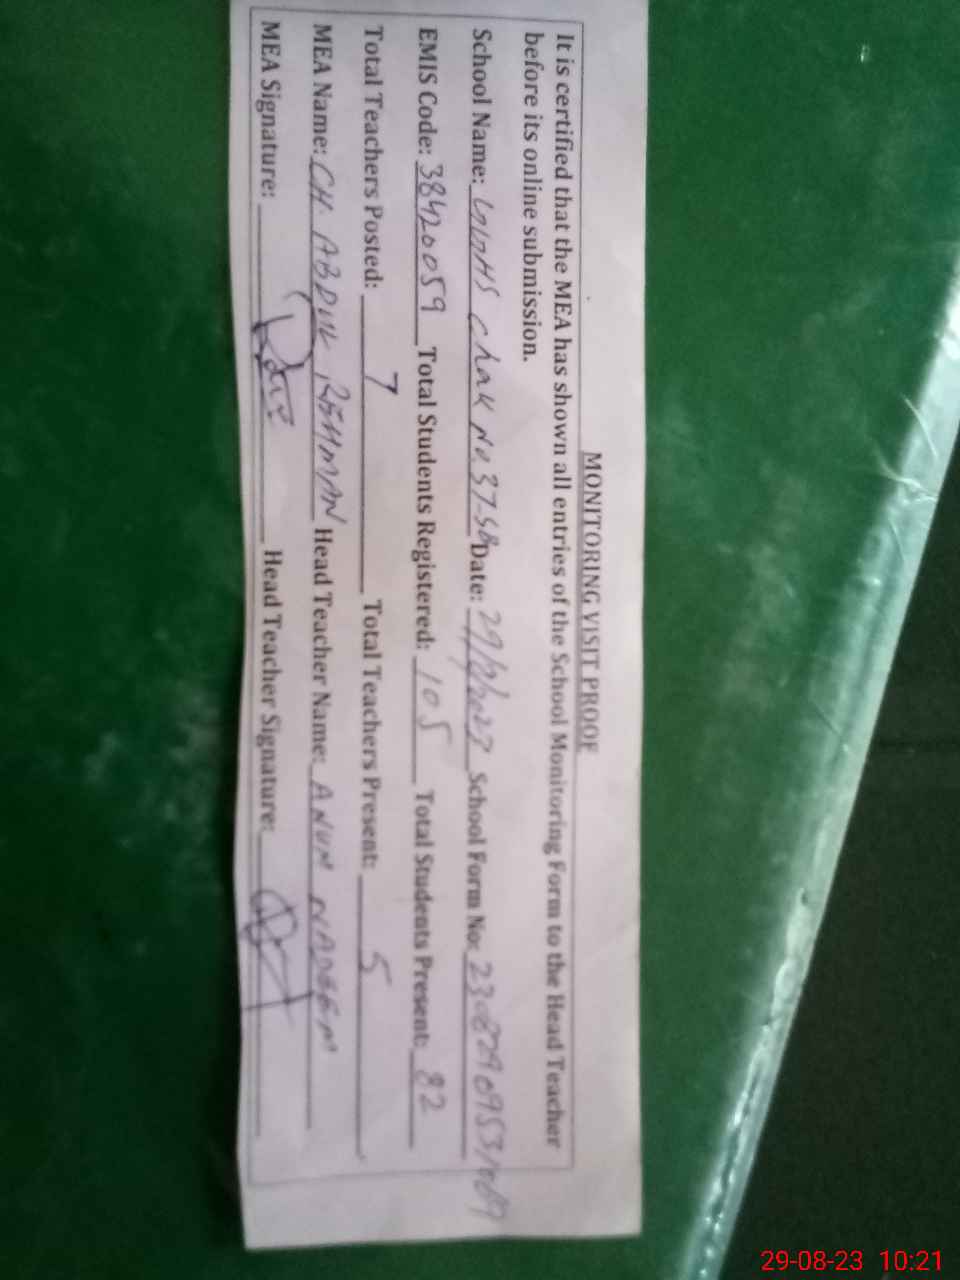 MONITORING VISIT PROOF
It is certified that the MEA has shown all entries of the School Monitoring Form to the Head Teacher
before its online submission.
School Name: GGHS Chak No 37-SB Date: 29/8/2023 School Form No:
EMIS Code: 38420059 Total Students Registered: 105 Total Students Present: 82
Total Teachers Posted: 7 Total Teachers Present: 5
MEA Name: CH. ABDUL REHMAN Head Teacher Name: ANUM NADEEM
MEA Signature: Head Teacher Signature:
29-08-23 10:21